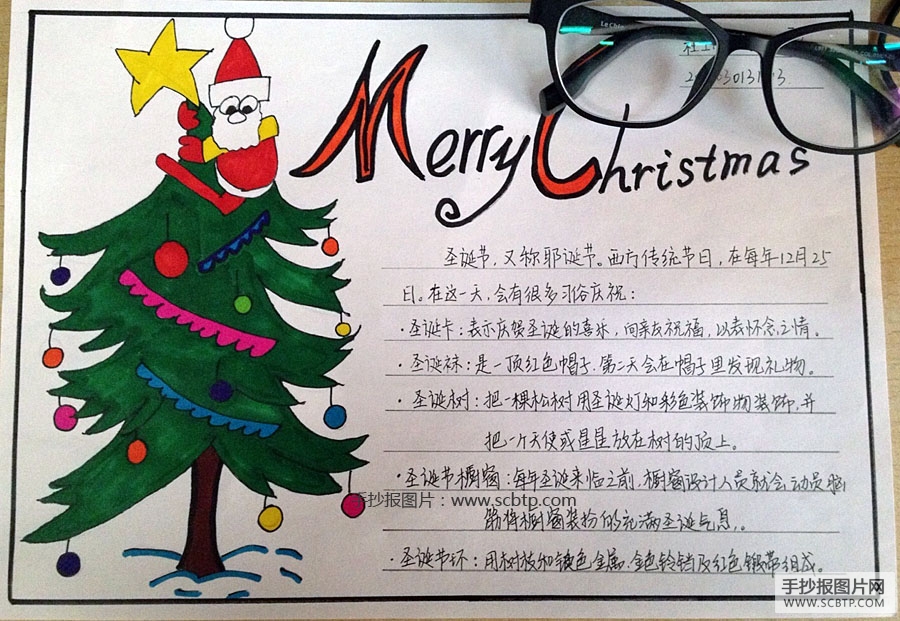 Merry Christmas
圣诞节,又称耶诞节。西方传统节日,在每年12月25
日。在这一天,会有很多习俗庆祝:
·圣诞卡:表示庆贺圣诞的喜乐,向亲友祝福,以表怀念之情。
·圣诞袜:是一顶红色帽子,第二天会在帽子里发现礼物。
·圣诞树:把一棵松树用圣诞灯和彩色装饰物装饰,并
把一个天使或星星放在树的顶上。
·圣诞节橱窗:每年圣诞来临之前,橱窗设计人员就会动员脑
手抄报图片:www.scbtp.com
筋将橱窗装扮的充满圣诞气息。
·圣诞节环:用树枝和镀色金属.金色铃铛及红色缎带组成。
手抄报图片网
WWW.SCBTP.COM